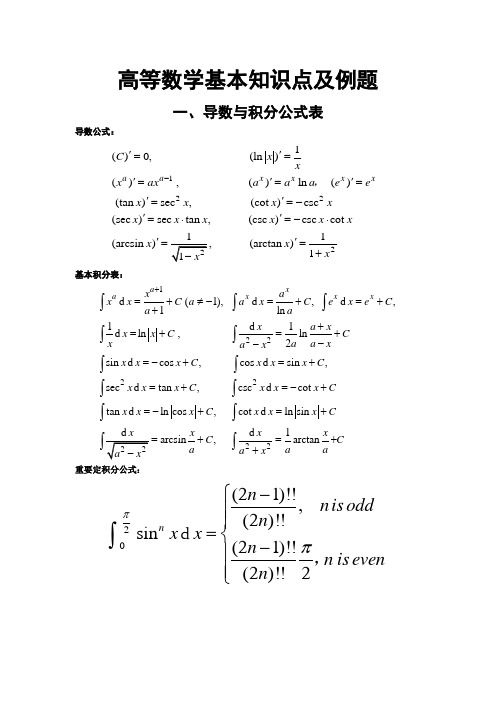 高等数学基本知识点及例题
一、导数与积分公式表
导数公式：
(C)′ = 0, (ln |x|)′ = 1/x
(x^a)′ = ax^(a−1) , (a^x)′ = a^x ln a， (e^x)′ = e^x
(tan x)′ = sec² x, (cot x)′ = −csc² x
(sec x)′ = sec x · tan x, (csc x)′ = −csc x · cot x
(arcsin x)′ = 1/√(1−x²), (arctan x)′ = 1/(1+x²)
基本积分表：
∫x^a d x = x^(a+1)/(a+1) + C (a ≠ −1), ∫a^x d x = a^x/ln a + C, ∫e^x d x = e^x + C,
∫1/x d x = ln |x| + C , ∫d x/(a² − x²) = 1/(2a) ln (a + x)/(a − x) + C
∫sin x d x = − cos x + C, ∫cos x d x = sin x + C,
∫sec² x d x = tan x + C, ∫csc² x d x = − cot x + C
∫tan x d x = − ln |cos x| + C, ∫cot x d x = ln |sin x| + C
∫d x/√(a² − x²) = arcsin x/a + C, ∫d x/(a² + x²) = 1/a arctan x/a +C
重要定积分公式：
∫_0^(π/2) sin^n x d x = { (2n − 1)!!/(2n)!! , n is odd
(2n − 1)!!/(2n)!! π/2 ，n is even